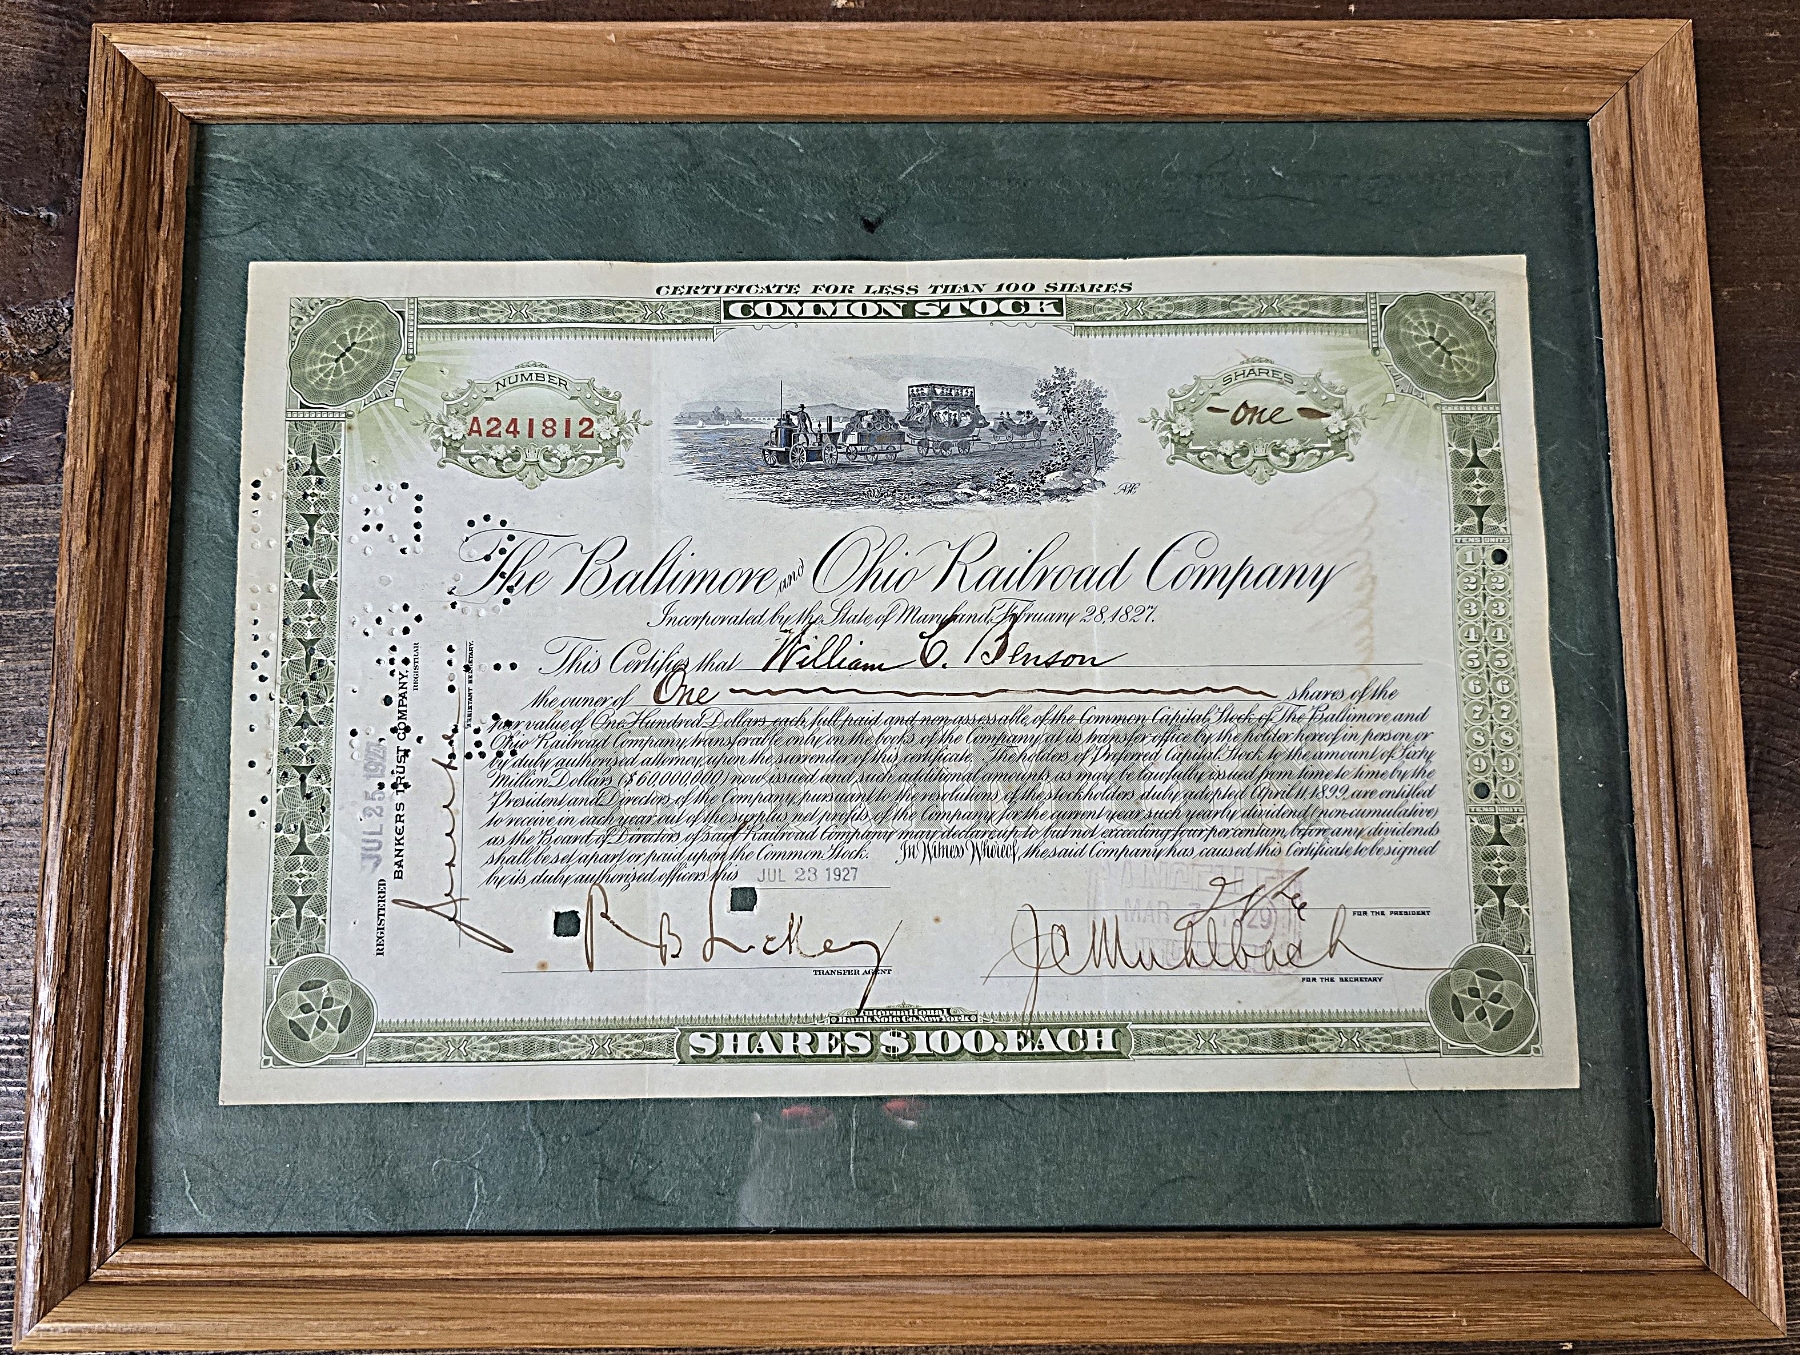 CERTIFICATE FOR LESS THAN 100 SHARES
COMMON STOCK
NUMBER
A241812
SHARES
-One-
The Baltimore and Ohio Railroad Company
Incorporated by the State of Maryland, February 28, 1827.
This Certifies that William C. Benson
the owner of One shares of the
par value of One Hundred Dollars each, full paid and non-assessable, of the Common Capital Stock of The Baltimore and
Ohio Railroad Company, transferable only on the books of the Company at its transfer office by the holder hereof in person or
by duly authorized attorney, upon the surrender of this certificate. The holders of Preferred Capital Stock to the amount of Sixty
Million Dollars ($60,000,000) now issued and such additional amounts as may be lawfully issued from time to time by the
President and Directors of the Company, pursuant to the resolutions of the stockholders duly adopted April 11, 1899, are entitled
to receive in each year out of the surplus net profits of the Company for the current year such yearly dividend (non-cumulative)
as the Board of Directors of said Railroad Company may declare up to but not exceeding four per centum, before any dividends
shall be set apart or paid upon the Common Stock. In Witness Whereof, the said Company has caused this Certificate to be signed
by its duly authorized officers this JUL 23 1927
FOR THE PRESIDENT
J C Muhlbach
FOR THE SECRETARY
TRANSFER AGENT
REGISTERED JUL 25 1927
BANKERS TRUST COMPANY,
REGISTRAR
ASSISTANT SECRETARY.
TENS UNITS
1
2 2
3 3
4 4
5 5
6 6
7 7
8 8
9 9
0
TENS UNITS
International
Bank Note Co. New York
SHARES $100. EACH